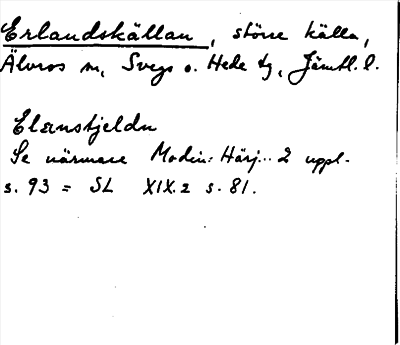 Erlandskällan, större källa,
Älvros sn, Svegs o. Hede tg, Jämtl. l.
Elanstjeldn
Se närmare Modin: Härj... 2 uppl.
s. 93 = SL XIX.2 s. 81.